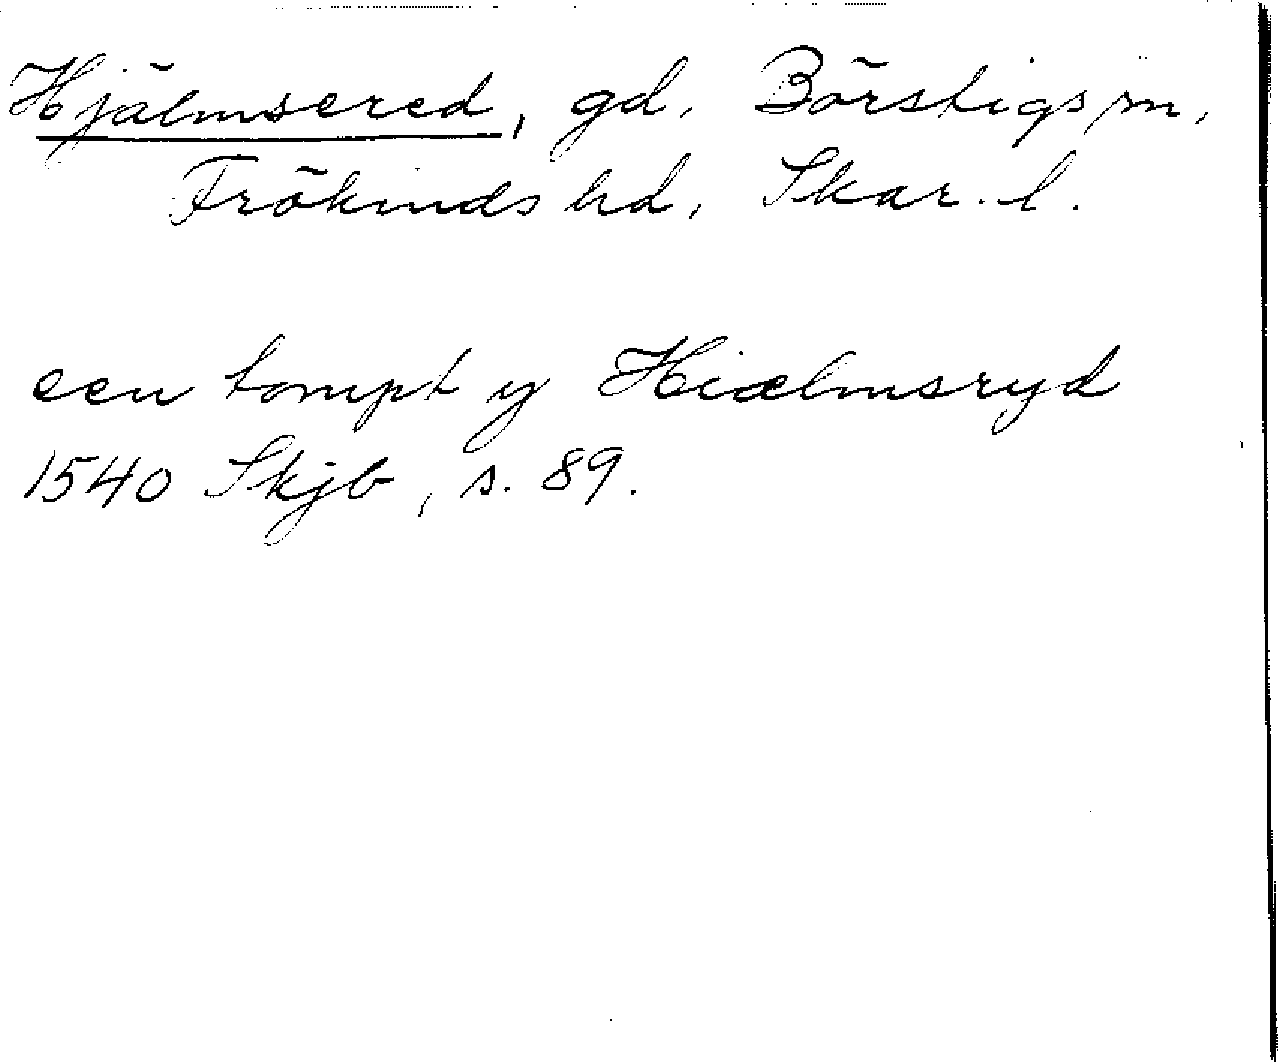 Hjälmsered, gd, Börstigs sn,
Frökinds hd, Skar. l.
een tompt y Hiælmsryd
1540 Skjb, s. 89.